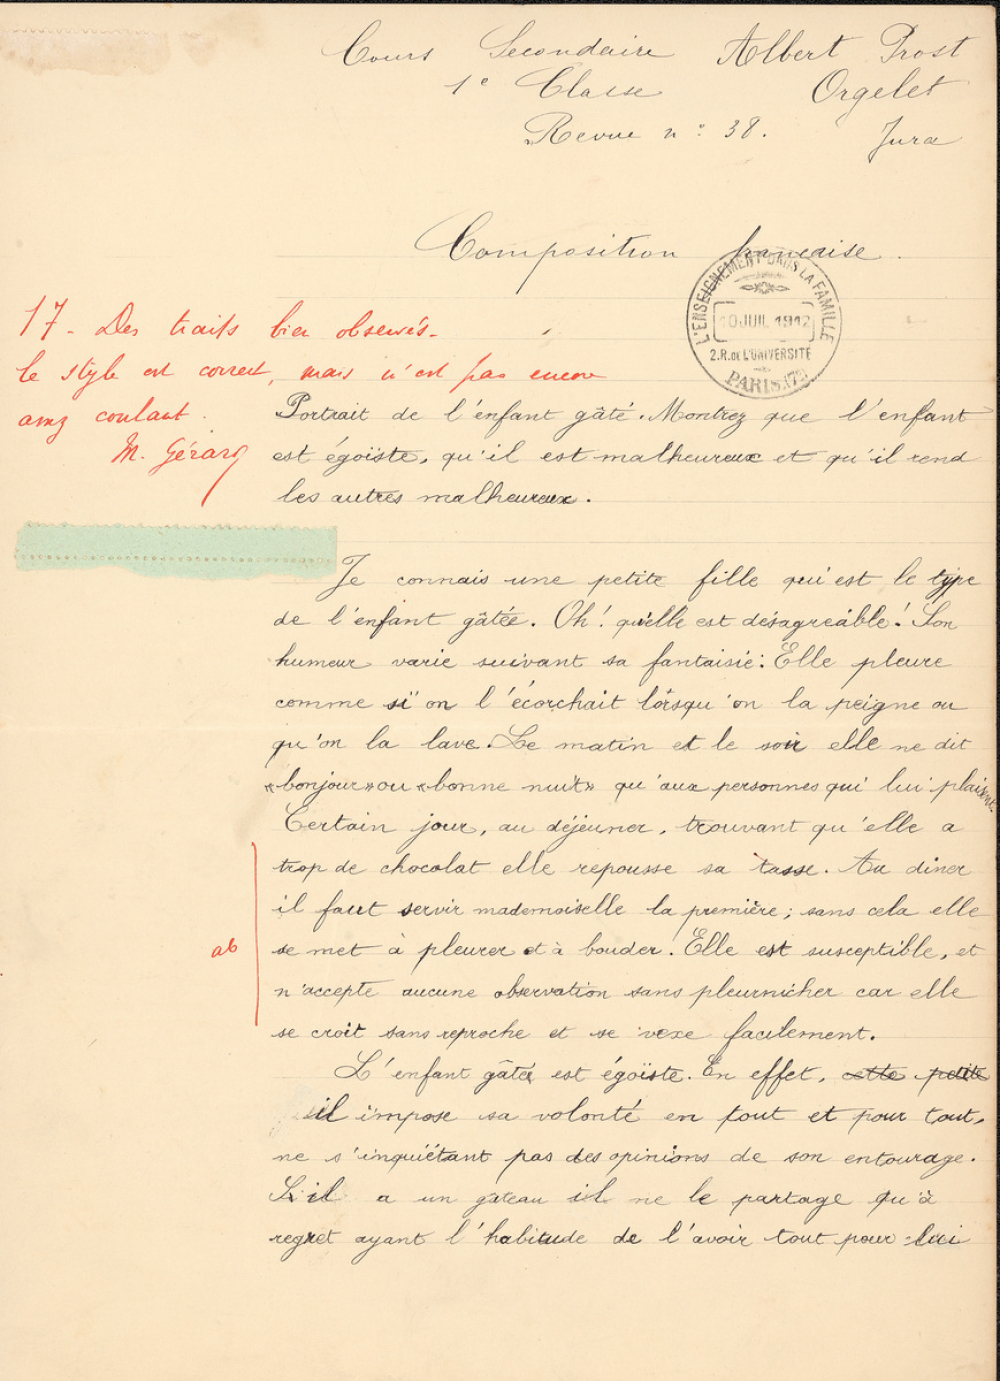 Cours Secondaire Albert Prost
1e Classe Orgelet
Revue n: 38. Jura
Composition française.
L'ENSEIGNEMENT DANS LA FAMILLE
10 JUIL 1912
2.R.DE L'UNIVERSITÉ
PARIS.(7e)
17 - Des traits bien observés.
le style est correct, mais n'est pas encore
assez coulant.
M. Gérard
Portrait de l'enfant gâté. Montrez que l'enfant
est égoïste, qu'il est malheureux et qu'il rend
les autres malheureux.
Je connais une petite fille qui est le type
de l'enfant gâtée. Oh! qu'elle est désagréable! Son
humeur varie suivant sa fantaisie: Elle pleure
comme si on l'écorchait lorsqu'on la peigne ou
qu'on la lave. Le matin et le soir elle ne dit
«bonjour» ou «bonne nuit» qu'aux personnes qui lui plaisent.
Certain jour, au déjeuner, trouvant qu'elle a
trop de chocolat elle repousse sa tasse. Au dîner
il faut servir mademoiselle la première; sans cela elle
ab
se met à pleurer et à bouder. Elle est susceptible, et
n'accepte aucune observation sans pleurnicher car elle
se croit sans reproche et se vexe facilement.
L'enfant gâté est égoïste. En effet, cette petite
il impose sa volonté en tout et pour tout,
ne s'inquiétant pas des opinions de son entourage.
S'il a un gâteau il ne le partage qu'à
regret ayant l'habitude de l'avoir tout pour lui